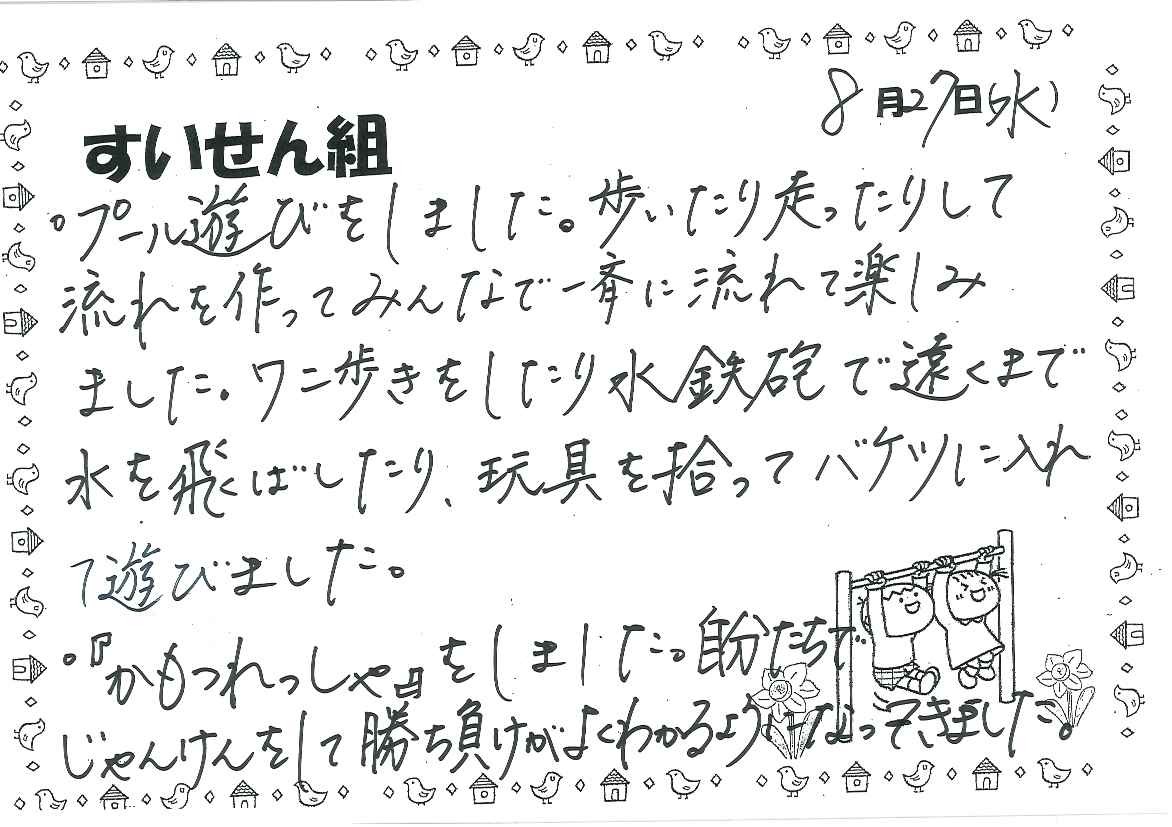 8月27日(水)
すいせん組
。プール遊びをしました。歩いたり走ったりして
流れを作ってみんなで一斉に流れて楽しみ
ました。ワニ歩きをしたり水鉄砲で遠くまで
水を飛ばしたり、玩具を拾ってバケツに入れ
て遊びました。
。『かもつれっしゃ』をしました。自分たちで
じゃんけんをして勝ち負けがよくわかるようになってきました。